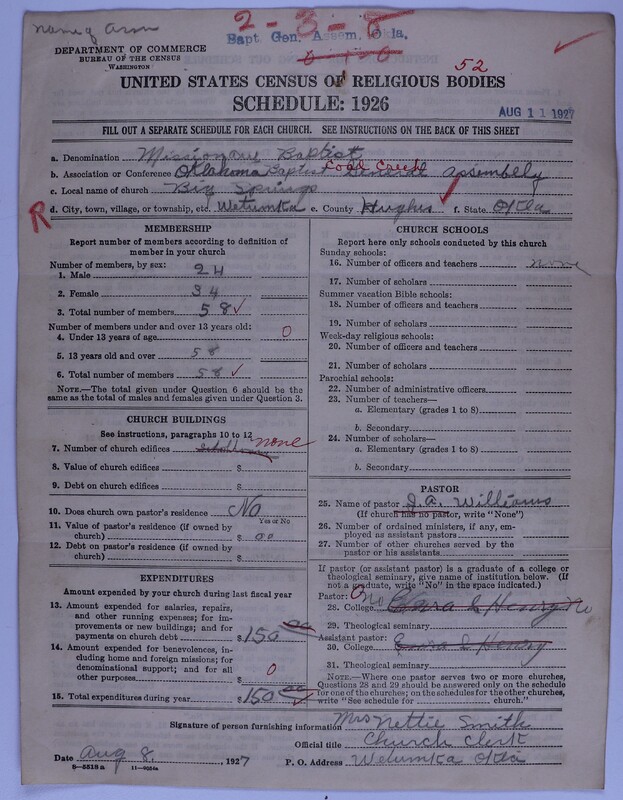 name of assn
2-3-8
Bapt Gen. Assem. Okla.
DEPARTMENT OF COMMERCE
BUREAU OF THE CENSUS
WASHINGTON
52
UNITED STATES CENSUS OF RELIGIOUS BODIES
SCHEDULE: 1926
AUG 11 1927
FILL OUT A SEPARATE SCHEDULE FOR EACH CHURCH. SEE INSTRUCTIONS ON THE BACK OF THIS SHEET
a. Denomination Missionary Baptist
b. Association or Conference Oklahoma Baptist General assembly
c. Local name of church Big Springs
R d. City, town, village, or township, etc. Wetumka e. County Hughes f. State Okla
MEMBERSHIP
Report number of members according to definition of
member in your church
Number of members, by sex:
1. Male 24
2. Female 34
3. Total number of members 58 ✓
Number of members under and over 13 years old:
4. Under 13 years of age 0
5. 13 years old and over 58
6. Total number of members 58 ✓
NOTE.—The total given under Question 6 should be the
same as the total of males and females given under Question 3.
CHURCH BUILDINGS
See instructions, paragraphs 10 to 12
7. Number of church edifices none
8. Value of church edifices $
9. Debt on church edifices $
10. Does church own pastor's residence? No
Yes or No
11. Value of pastor's residence (if owned by
church) $ 00
12. Debt on pastor's residence (if owned by
church) $
EXPENDITURES
Amount expended by your church during last fiscal year
13. Amount expended for salaries, repairs,
and other running expenses; for im-
provements or new buildings; and for
payments on church debt $150 00
14. Amount expended for benevolences, in-
cluding home and foreign missions; for
denominational support; and for all
other purposes $ 0
15. Total expenditures during year $150 00
CHURCH SCHOOLS
Report here only schools conducted by this church
Sunday schools:
16. Number of officers and teachers none
17. Number of scholars
Summer vacation Bible schools:
18. Number of officers and teachers
19. Number of scholars
Week-day religious schools:
20. Number of officers and teachers
21. Number of scholars
Parochial schools:
22. Number of administrative officers
23. Number of teachers—
a. Elementary (grades 1 to 8)
b. Secondary
24. Number of scholars—
a. Elementary (grades 1 to 8)
b. Secondary
PASTOR
25. Name of pastor J. A. Williams
(If church has no pastor, write "None")
26. Number of ordained ministers, if any, em-
ployed as assistant pastors
27. Number of other churches served by the
pastor or his assistants
If pastor (or assistant pastor) is a graduate of a college or
theological seminary, give name of institution below. (If
not a graduate, write "No" in the space indicated.)
Pastor:
28. College No
29. Theological seminary
Assistant pastor:
30. College
31. Theological seminary
NOTE.—Where one pastor serves two or more churches,
Questions 28 and 29 should be answered only on the schedule
for one of the churches; on the schedules for the other churches,
write "See schedule for church."
Signature of person furnishing information Mrs Nettie Smith
Official title Church Clerk
Date Aug 8, 1927 P. O. Address Wetumka Okla
8-5518 a